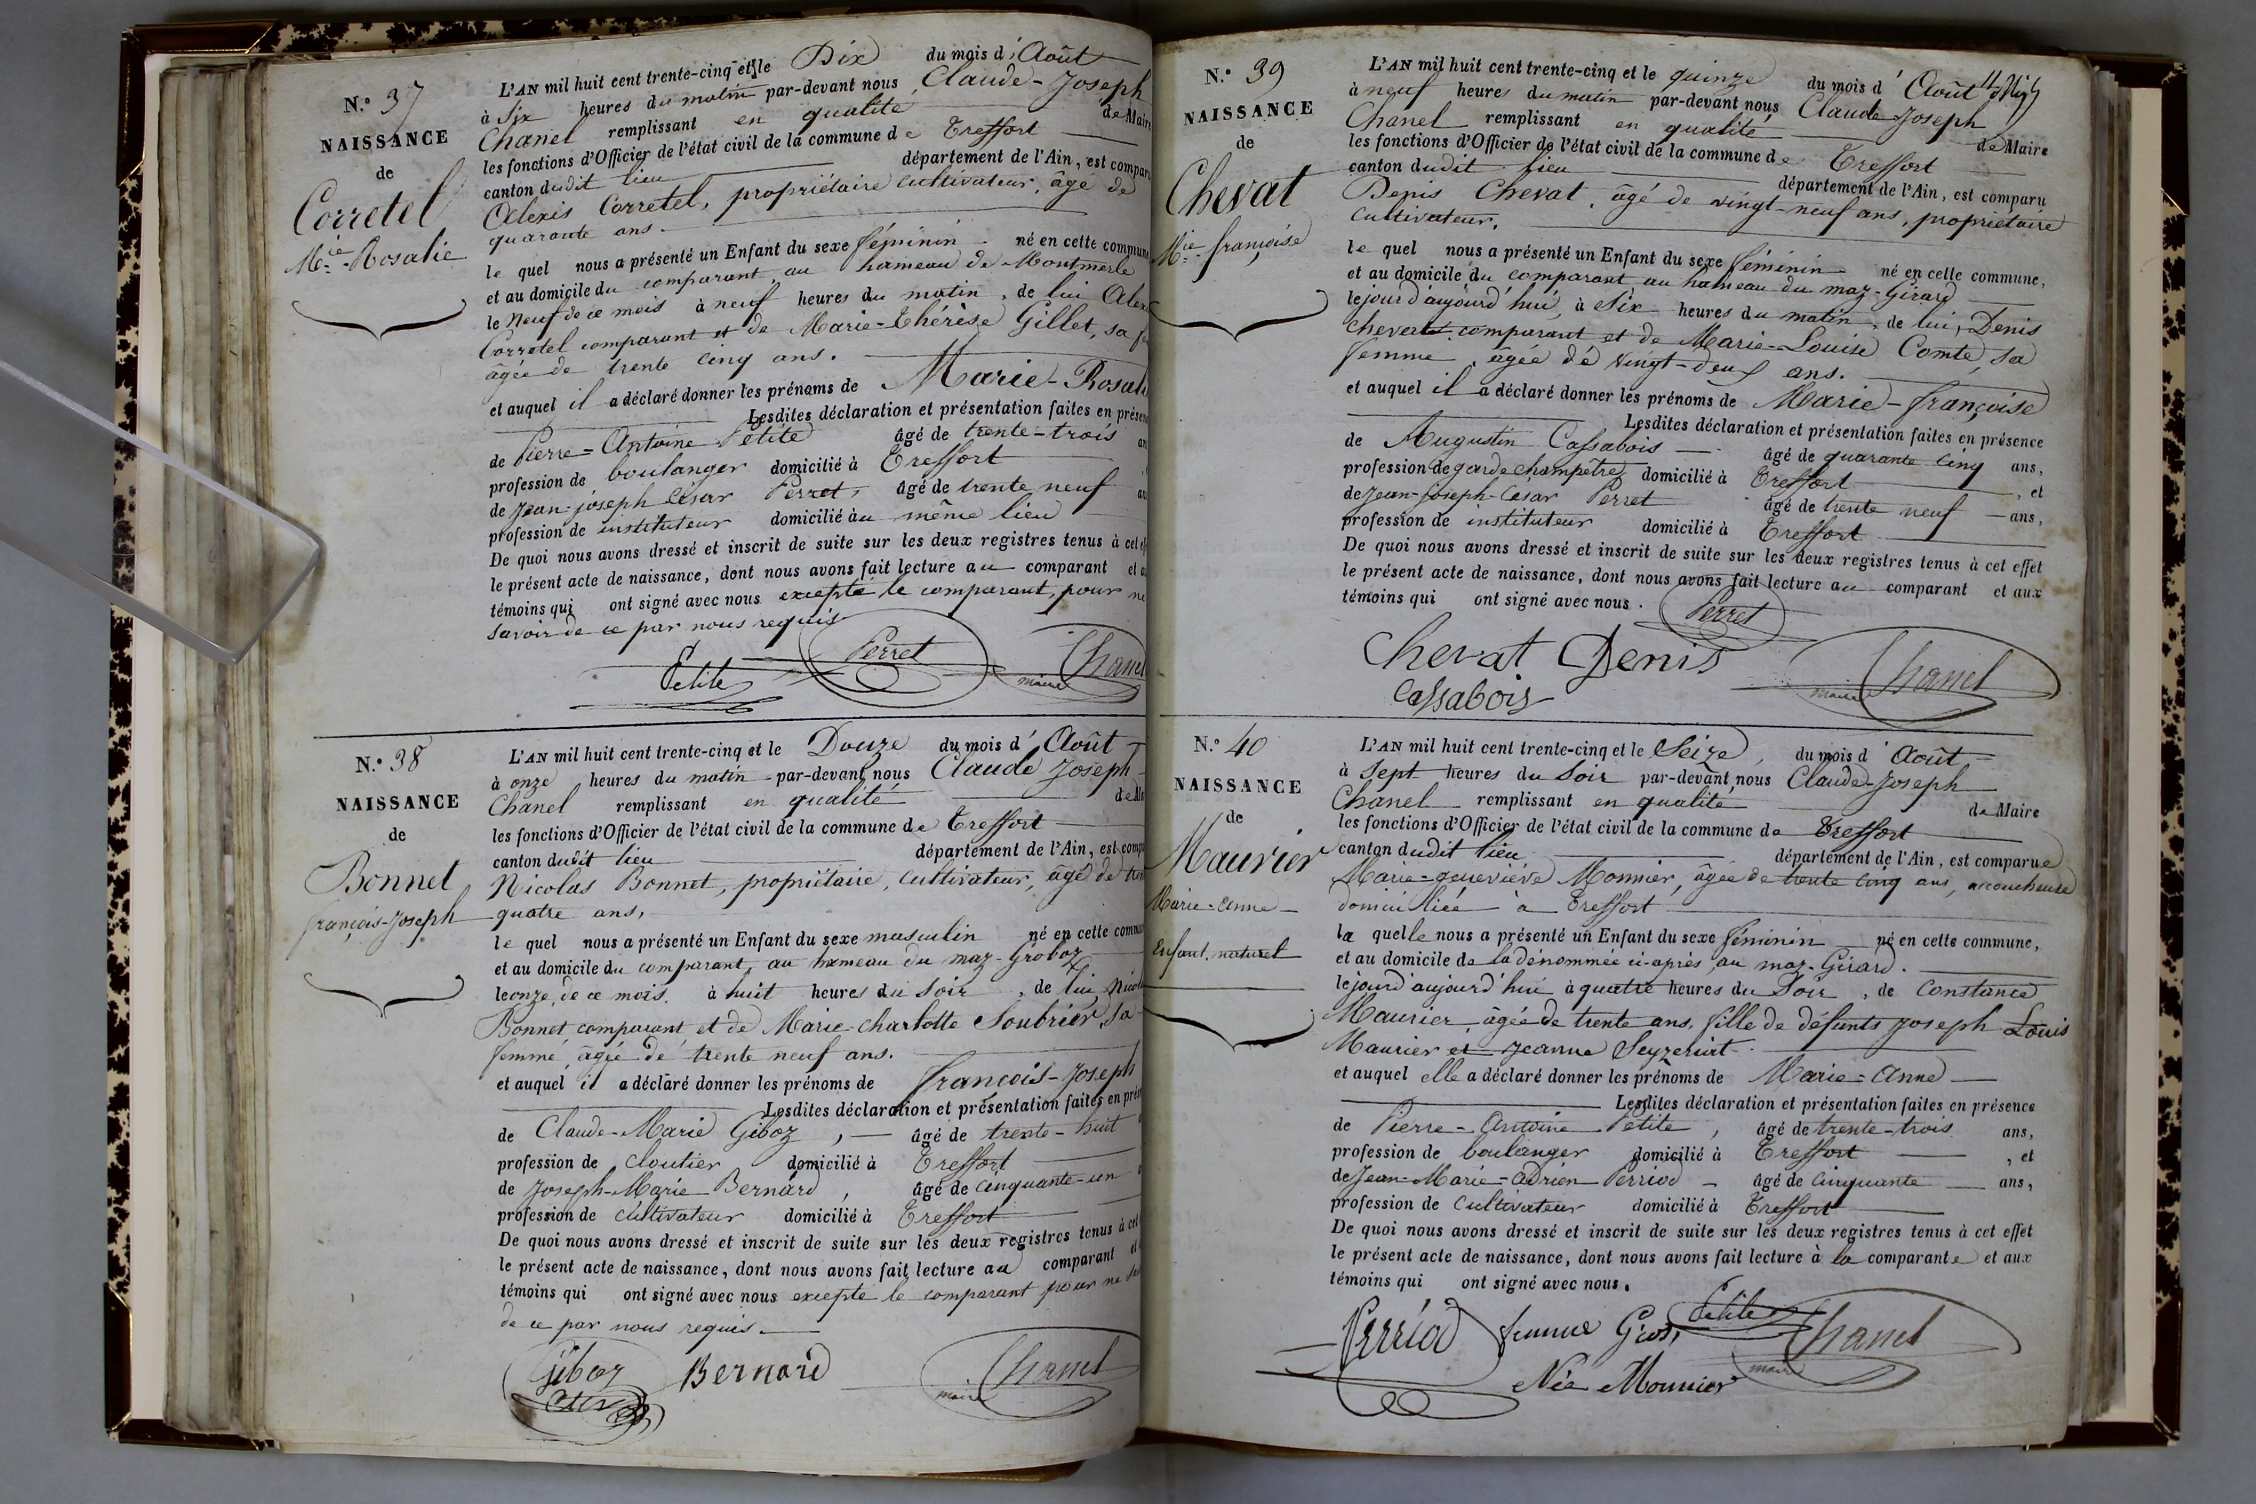 N.º 37
NAISSANCE
de
Corretel
M.ie Rosalie
L'AN mil huit cent trente-cinq et le Dix du mois d'Août
à Six heures du matin par-devant nous Claude-Joseph
Chanel remplissant en qualité de Maire
les fonctions d'Officier de l'état civil de la commune de Treffort
canton dudit lieu département de l'Ain, est compar
Alexis Corretel, propriétaire cultivateur, âgé de
quarante ans.
le quel nous a présenté un Enfant du sexe féminin né en cette commune
et au domicile du comparant au hameau de Montmerle
le Neuf de ce mois à neuf heures du matin, de lui Alex
Corretel comparant et de Marie-Thérèse Gillet, sa fe
âgée de trente cinq ans.
et auquel il a déclaré donner les prénoms de Marie-Rosali
Lesdites déclaration et présentation faites en présen
de Pierre-Antoine Petite âgé de trente-trois an
profession de boulanger domicilié à Treffort
de Jean-joseph César Perret, âgé de trente neuf an
profession de instituteur domicilié au même lieu
De quoi nous avons dressé et inscrit de suite sur les deux registres tenus à cet eff
le présent acte de naissance, dont nous avons fait lecture au comparant et a
témoins qui ont signé avec nous excepté le comparant, pour ne
savoir de ce par nous requis
Petite Perret Chanel
maire
N.º 38
NAISSANCE
de
Bonnet
françois-Joseph
L'AN mil huit cent trente-cinq et le Douze du mois d'Août
à onze heures du matin par-devant nous Claude Joseph
Chanel remplissant en qualité de Ma
les fonctions d'Officier de l'état civil de la commune de Treffort
canton dudit lieu département de l'Ain, est comp
Nicolas Bonnet, propriétaire, cultivateur, âgé de tren
quatre ans,
le quel nous a présenté un Enfant du sexe masculin né en cette commu
et au domicile du comparant, au hameau du maz-Groboz
le onze, de ce mois à huit heures du soir, de lui Nicol
Bonnet comparant et de Marie-charlotte Soubrier, sa
femme âgée de trente neuf ans.
et auquel il a déclaré donner les prénoms de françois-Joseph
Lesdites déclaration et présentation faites en prés
de Claude-Marie Giboz, âgé de trente-huit
profession de cloutier domicilié à Treffort
de Joseph-Marie Bernard, âgé de cinquante-un
profession de cultivateur domicilié à Treffort
De quoi nous avons dressé et inscrit de suite sur les deux registres tenus à cet
le présent acte de naissance, dont nous avons fait lecture au comparant et
témoins qui ont signé avec nous excepté le comparant pour ne sa
de ce par nous requis.
Giboz Bernard Chanel
maire
N.º 39
NAISSANCE
de
Chevat
M.ie françoise
L'AN mil huit cent trente-cinq et le quinze du mois d'Août
à neuf heures du matin par-devant nous Claude Joseph
Chanel remplissant en qualité de Maire
les fonctions d'Officier de l'état civil de la commune de Treffort
canton dudit lieu département de l'Ain, est comparu
Denis Chevat, âgé de vingt-neuf ans, propriétaire
cultivateur.
le quel nous a présenté un Enfant du sexe féminin né en cette commune,
et au domicile du comparant au hameau du maz-Girard
le jour d'aujourd'hui, à Six heures du matin, de lui, Denis
Chevat comparant et de Marie-Louise Comte, sa
femme, âgée de vingt-deux ans.
et auquel il a déclaré donner les prénoms de Marie-françoise
Lesdites déclaration et présentation faites en présence
de Augustin Cassabois âgé de quarante cinq ans,
profession de garde champetre domicilié à Treffort, et
de Jean-Joseph-César Perret âgé de trente neuf ans,
profession de instituteur domicilié à Treffort
De quoi nous avons dressé et inscrit de suite sur les deux registres tenus à cet effet
le présent acte de naissance, dont nous avons fait lecture au comparant et aux
témoins qui ont signé avec nous.
Perret
Chevat Denis Chanel
Cassabois maire
N.º 40
NAISSANCE
de
Maurier
Marie-anne
Enfant naturel
L'AN mil huit cent trente-cinq et le Seize, du mois d'Août
à Sept heures du Soir par-devant nous Claude-Joseph
Chanel remplissant en qualité de Maire
les fonctions d'Officier de l'état civil de la commune de Treffort
canton dudit lieu département de l'Ain, est comparue
Marie-geneviève Monnier, âgée de trente cinq ans, accoucheuse
domiciliée à Treffort
la quelle nous a présenté un Enfant du sexe féminin né en cette commune,
et au domicile de la dénommée ci-après, au maz-Girard.
le jour d'aujourd'hui à quatre heures du Soir, de Constance
Maurier âgée de trente ans, fille de défunts Joseph Louis
Maurier et Jeanne Seyzeriat
et auquel elle a déclaré donner les prénoms de Marie-Anne
Lesdites déclaration et présentation faites en présence
de Pierre-Antoine Petite, âgé de trente-trois ans,
profession de boulanger domicilié à Treffort, et
de Jean-Marie-adrien Perriod âgé de cinquante ans,
profession de Cultivateur domicilié à Treffort
De quoi nous avons dressé et inscrit de suite sur les deux registres tenus à cet effet
le présent acte de naissance, dont nous avons fait lecture à la comparante et aux
témoins qui ont signé avec nous.
Perriod femme Gros, Petite Chanel
Née Monnier maire